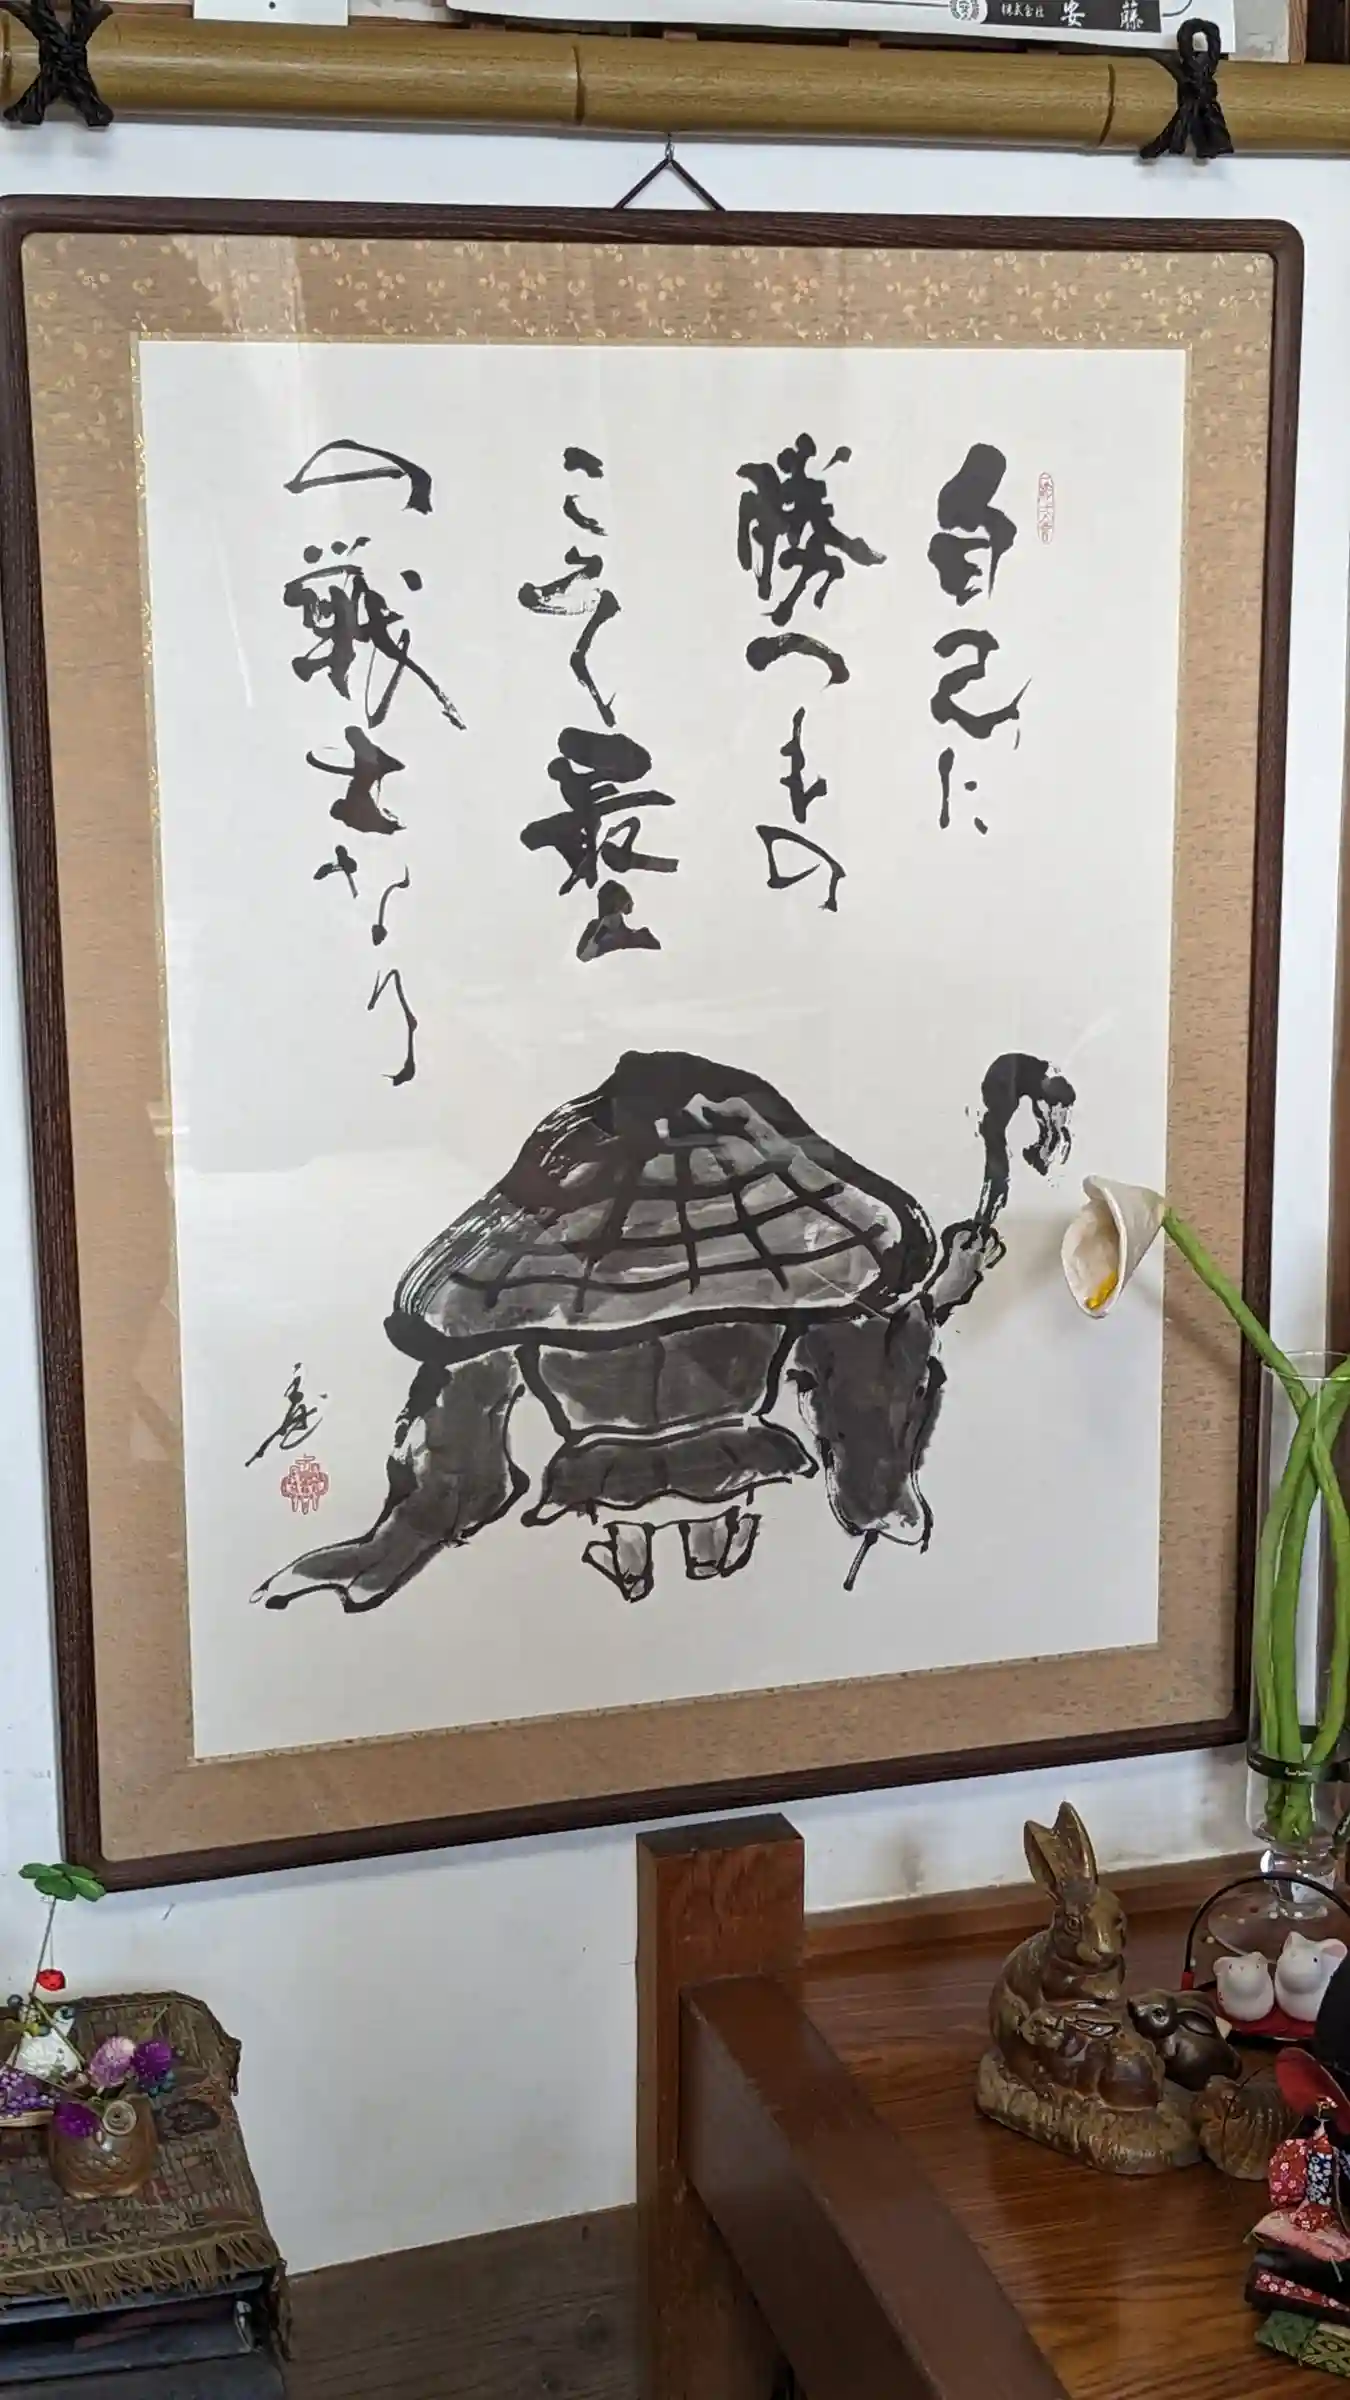 株式会社 安藤
自己に
勝つもの
こそ最上
の戦士なり